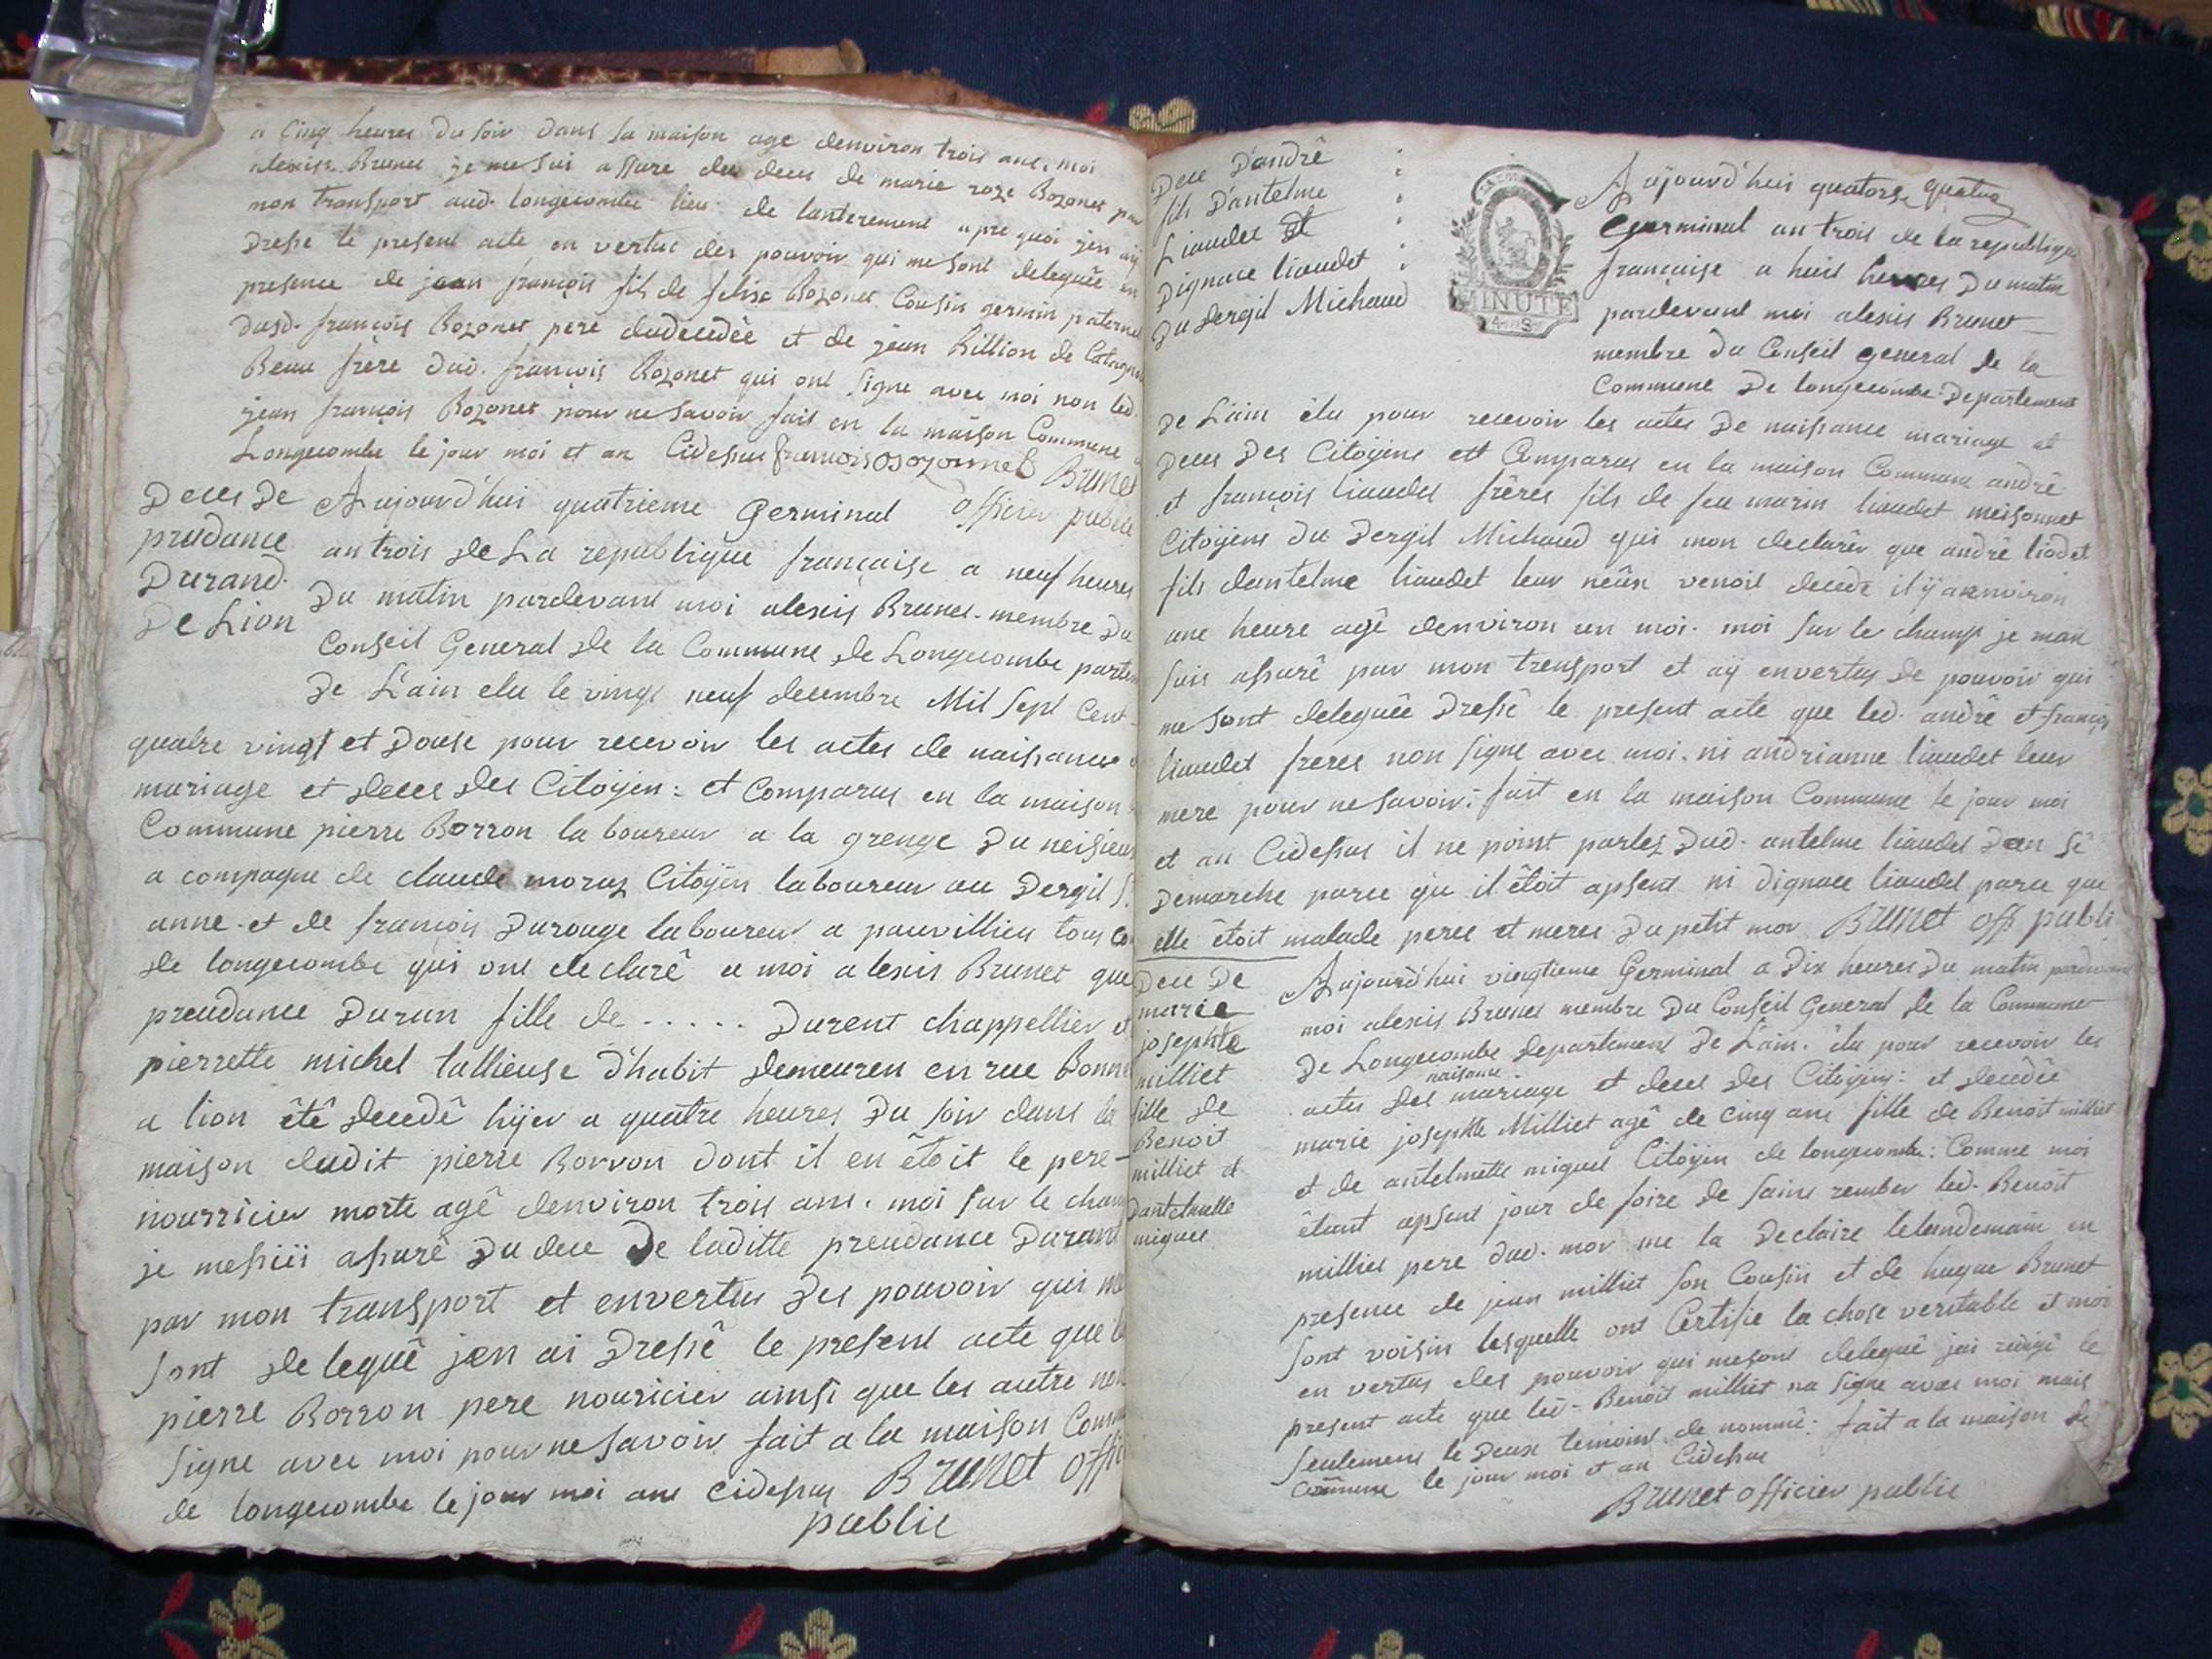 a cinq heures du soir dans sa maison age denviron trois ans. moi
alexis Brunet je me sui assure du deces de marie roze Bozonet par
mon transport aud. longecombe lieu de lanterement apre quoi jen aÿ
dresse le present acte en vertue des pouvoir qui me sont deleguée en
presence de jean françois fils de felise Bozonet Cousin germin paternel
dusd. françois Bozonet pere dudecedée et de jean Billion de
Beau frère dud. françois Bozonet qui ont signe avec moi non led.
jean françois Bozonet pour ne savoir fait en la maison Commune
Longecombe le jour moi et an Cidessus francois Bozonnet Brunet
officier public
Deces De
prudance
Durand.
De Lion
Aujourd'hui quatrieme Germinal
an trois de La republique française a neuf heures
Du matin pardevant moi alexis Brunet membre Du
Conseil General de la Commune de Longecombe
De L'ain elu le vingt neuf decembre Mil sept Cent
quatre vingt et Douse pour recevoir les actes de naissance
mariage et deces des Citoÿen : et Comparus en la maison
Commune pierre Borron laboureur a la grenge Du
a compagne de claude moraz Citoÿen laboureur au Dergil S.
anne et de françois Durouge laboureur a pauvillieu tous
de longecombe qui ont declarê a moi alexis Brunet que
preudance Duran fille de ..... Durent chappellier et
pierrette michel tallieuse d'habit demeuren en rue Bonne
a lion êtê decedê hÿer a quatre heures Du soir dans la
maison dudit pierre Borron dont il en êtoit le pere
nourricier morte agê denviron trois ans. moi sur le champ
je mesuii assurê Du dece De laditte preudance Durant
par mon transport et envertus Des pouvoir qui me
sont deleguê jen ai Dressê le present acte que le
pierre Borron pere nouricier ainsi que les autre non
signe avec moi pour ne savoir fait a la maison Commu
de longecombe le jour moi ans Cidessus Brunet offic
public
Dece D'andrê
fils D'antelme
Liaudet et
Dignace liaudet
Du Dergil Michaud
MINUTE
4 S
Aujourd'hui quatorse
Germinal an trois de la republique
française a huit heures Du matin
pardevant moi alexis Brunet
membre Du Conseil general de la
Commune De longecombe Departement
De L'ain êlu pour recevoir les actes De naissance mariage et
Deces Des Citoÿens et Comparus en la maison Commune andrê
et françois liaudet frères fils de feu marin liaudet meisonnet
Citoÿens Du Dergil Michaud qui mon declarêr que andrê liodet
fils dantelme liaudet leur neûsx venoit decede il ÿ a environ
une heure agê denviron un moi. moi sur le champ je man
suis assurê par mon transport et aÿ envertus de pouvoir qui
me sont deleguée Dressê le present acte que led. andrê et françois
liaudet freres non signe avec moi. ni andrianne liaudet leur
mere pour ne savoir : fait en la maison Commune le jour moi
et an Cidessus il ne point parlez Dud. antelme liaudet Dan sê
Demarche parce qu'il êtoit apsent ni dignace liaudet parce que
elle êtoit malade peres et meres Du petit mor Brunet off publi
Dece De
marie
josephte
milliet
fille de
Benoit
milliet et
Dantelmette
miguet
Aujourd'hui vingtieme Germinal a Dix heures Du matin pardevant
moi alexis Brunet membre Du Conseil General de la Commune
De Longecombe Departement De L'ain. êlu pour recevoir les
actes Des naisance mariage et deces des Citoÿens : et decedêe
marie josephte Milliet agê de cinq ans fille de Benoit milliet
et de antelmette miguet Citoÿen de longecombe : Comme moi
êtant apsent jour de foire de saint rember led. Benoit
milliet pere dud. mor me la Declaire lelandemain en
presence de jean milliet son Cousin et de hugue Brunet
sont voisin lesquelle ont Certifie la chose veritable et moi
en vertus des pouvoir qui mesont deleguê jai redigê le
present acte que led. Benoit milliet na signe avec moi mais
seulement le Deux temoins de nommê : fait a la maison de
Commune le jour moi et an Cidessus
Brunet officier public